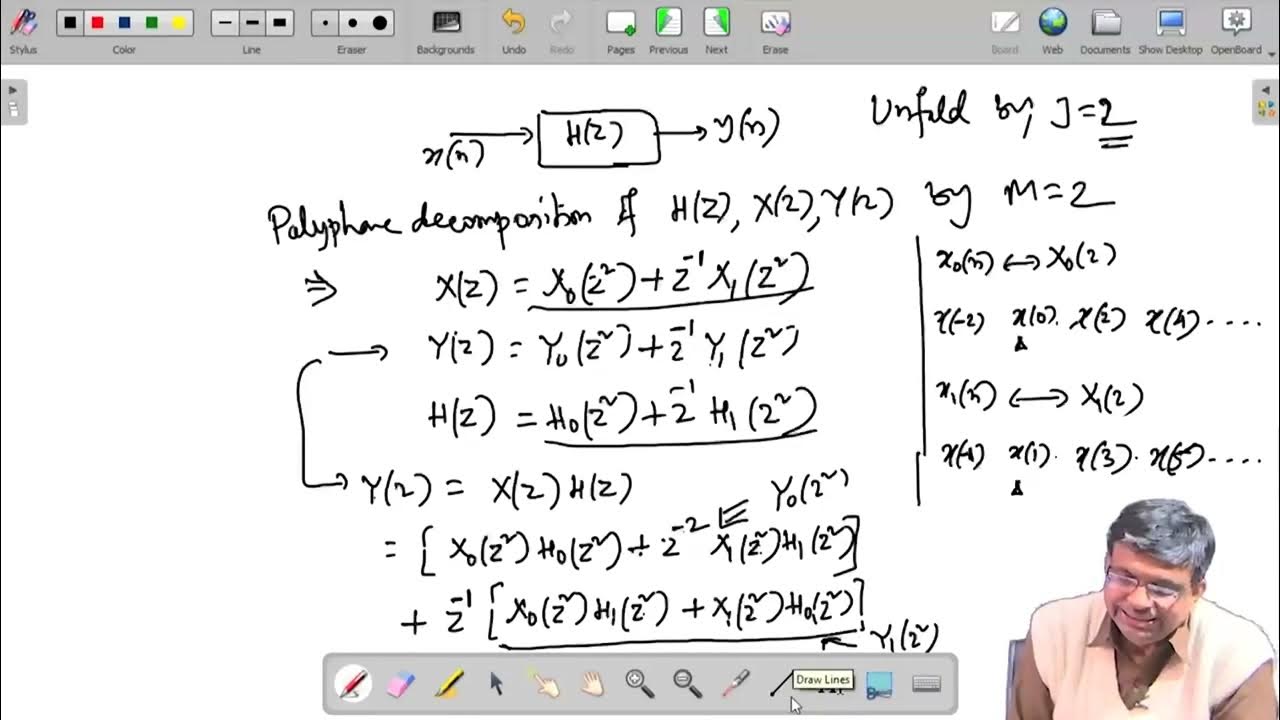 Stylus Color Line Eraser Backgrounds Undo Redo Pages Previous Next Erase Board Web Documents Show Desktop OpenBoard
x(n) → H(z) → y(n)
Unfold by J=2
Polyphase decomposition of H(z), X(z), Y(z) by M=2
⇒ X(z) = X₀(z²) + z⁻¹ X₁(z²)
→ Y(z) = Y₀(z²) + z⁻¹ Y₁(z²)
H(z) = H₀(z²) + z⁻¹ H₁(z²)
→ Y(z) = X(z) H(z)
Y₀(z²)
= [X₀(z²) H₀(z²) + z⁻² X₁(z²) H₁(z²)]
+ z⁻¹ [X₀(z²) H₁(z²) + X₁(z²) H₀(z²)]
← Y₁(z²)
x₀(n) ↔ X₀(z)
x(-2) x(0). x(2) x(4) ....
x₁(n) ↔ X₁(z)
x(-1) x(1). x(3). x(5) ....
Draw Lines